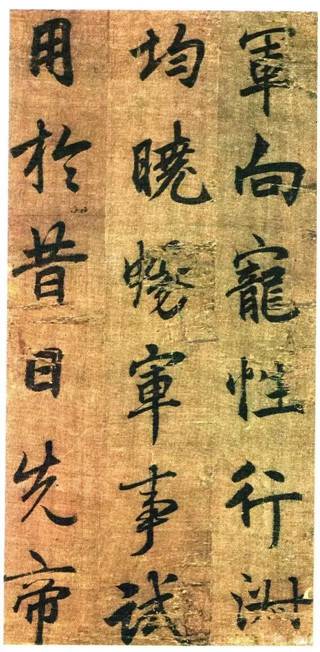 軍向寵性行淑
均曉軍事試
用於昔日先帝